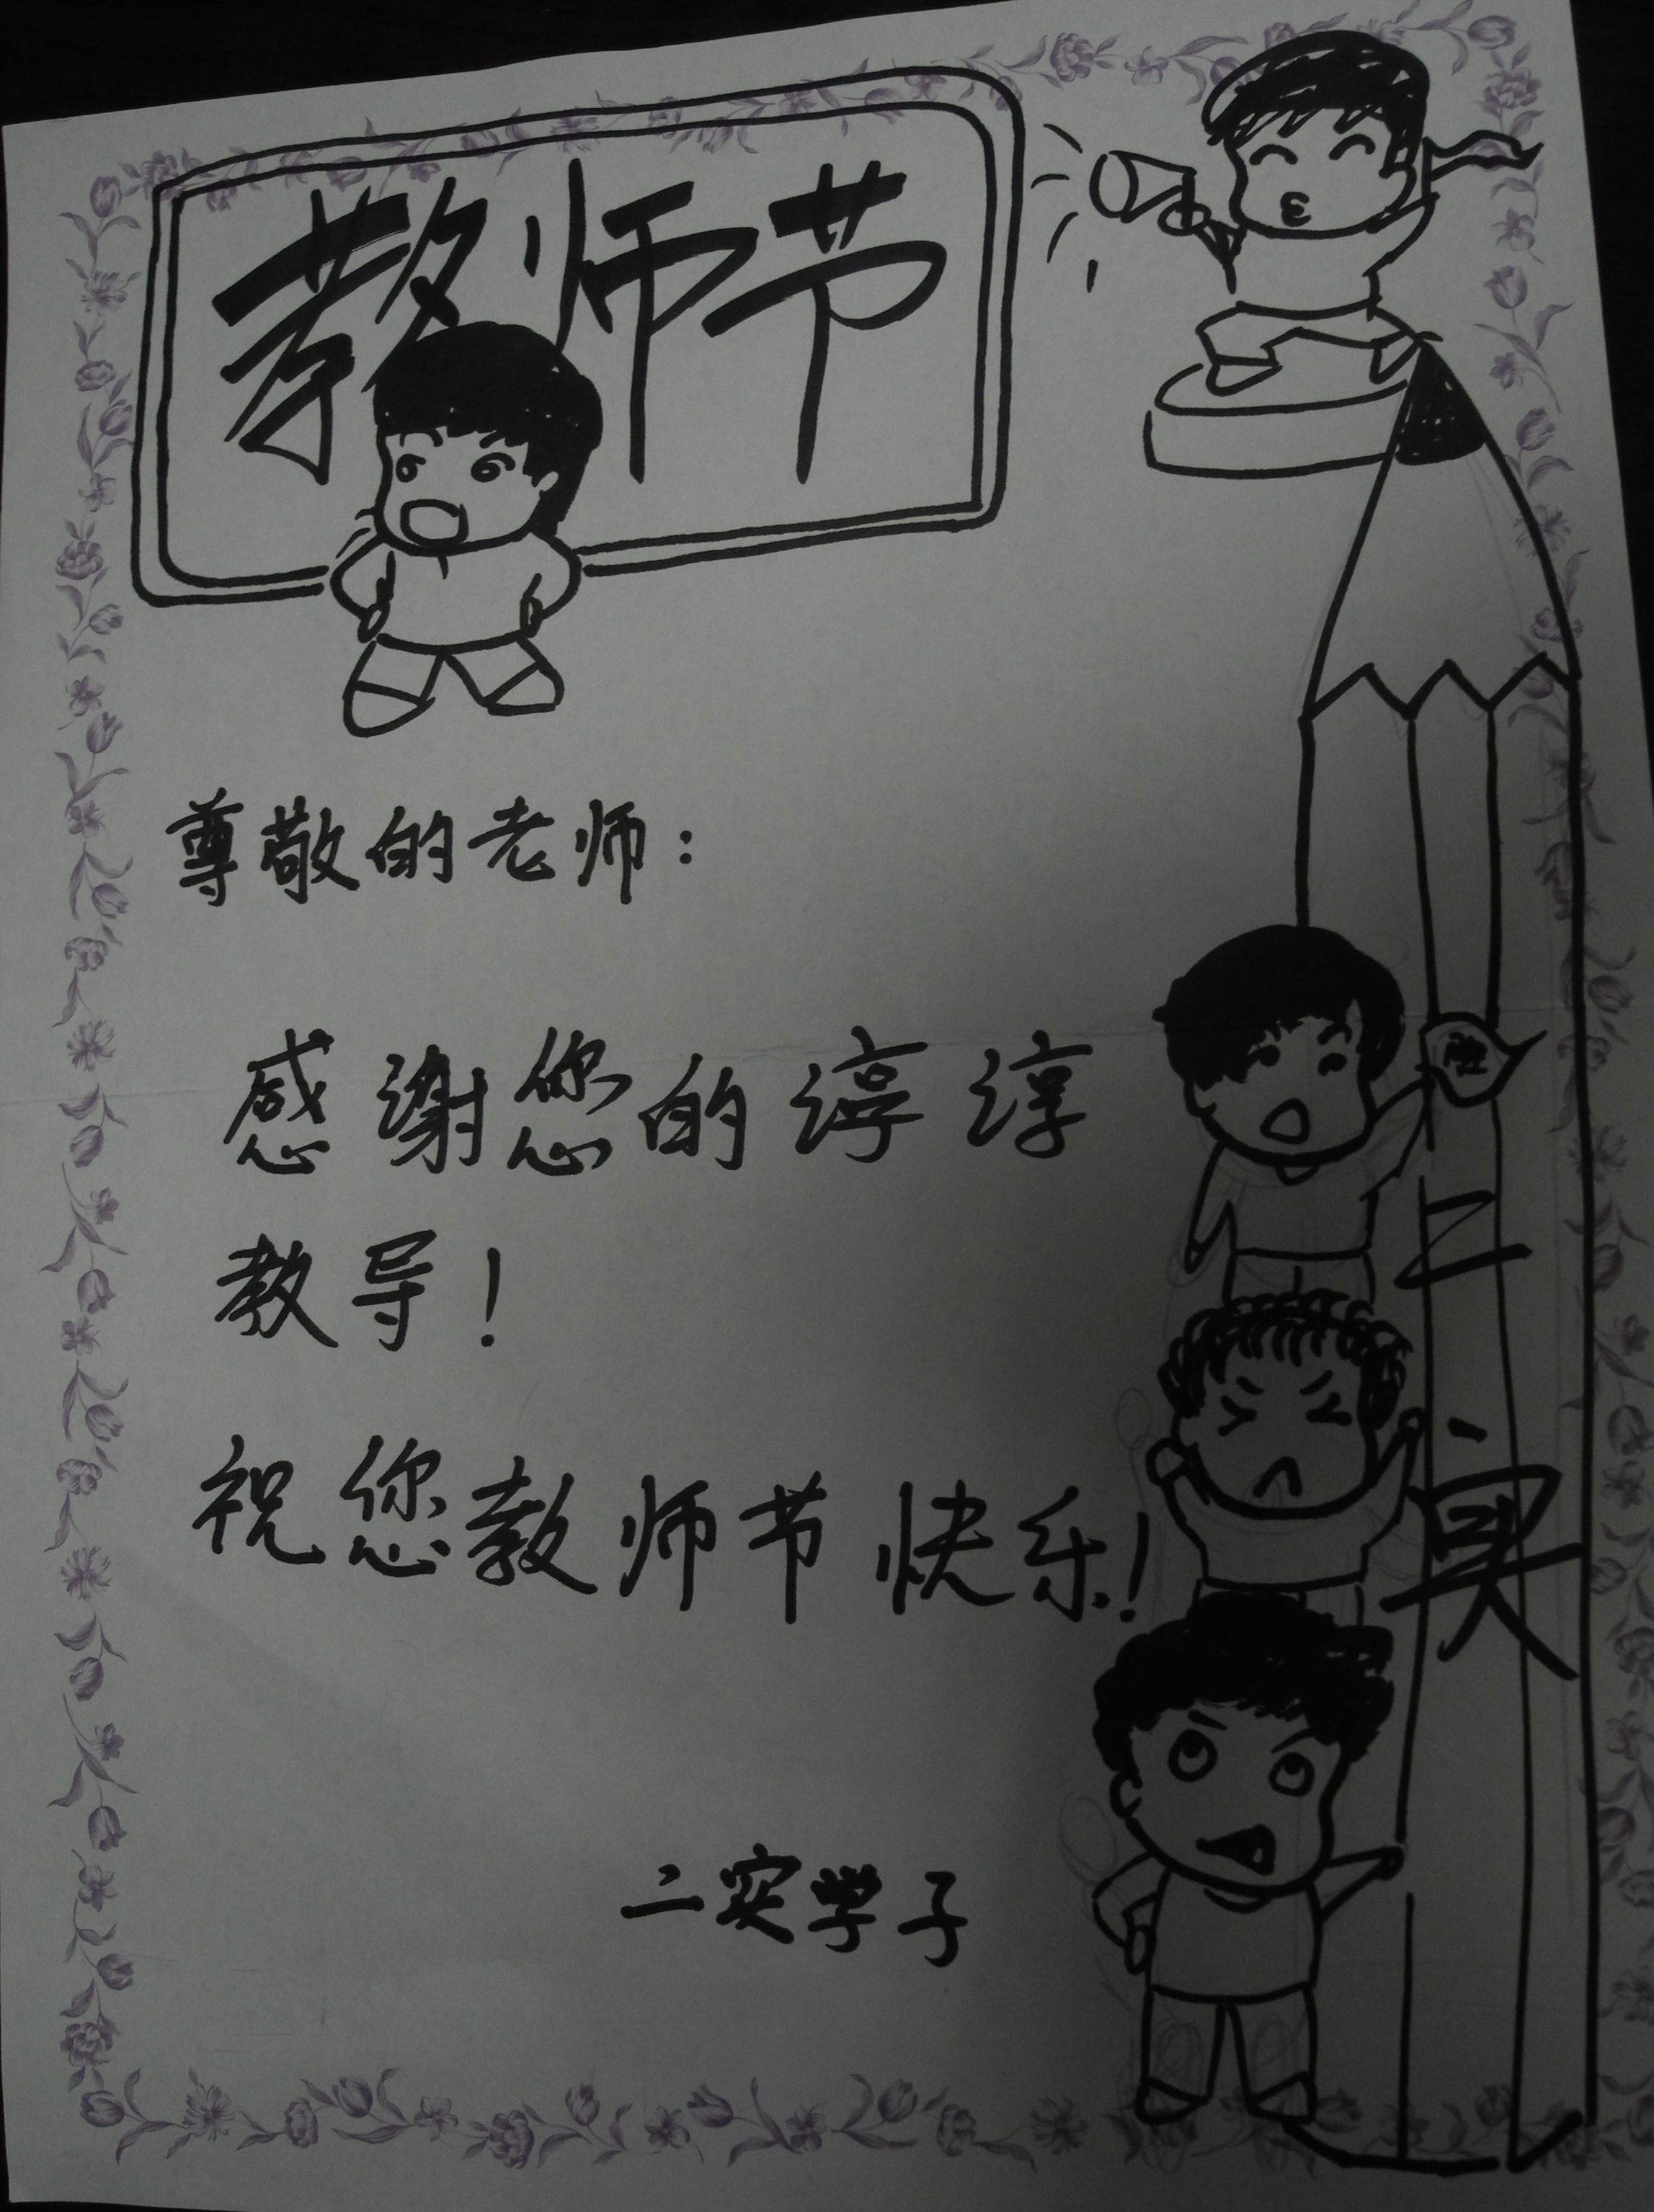 教师节
尊敬的老师：
感谢您的谆谆
教导！
祝您教师节快乐！
二实学子
二实